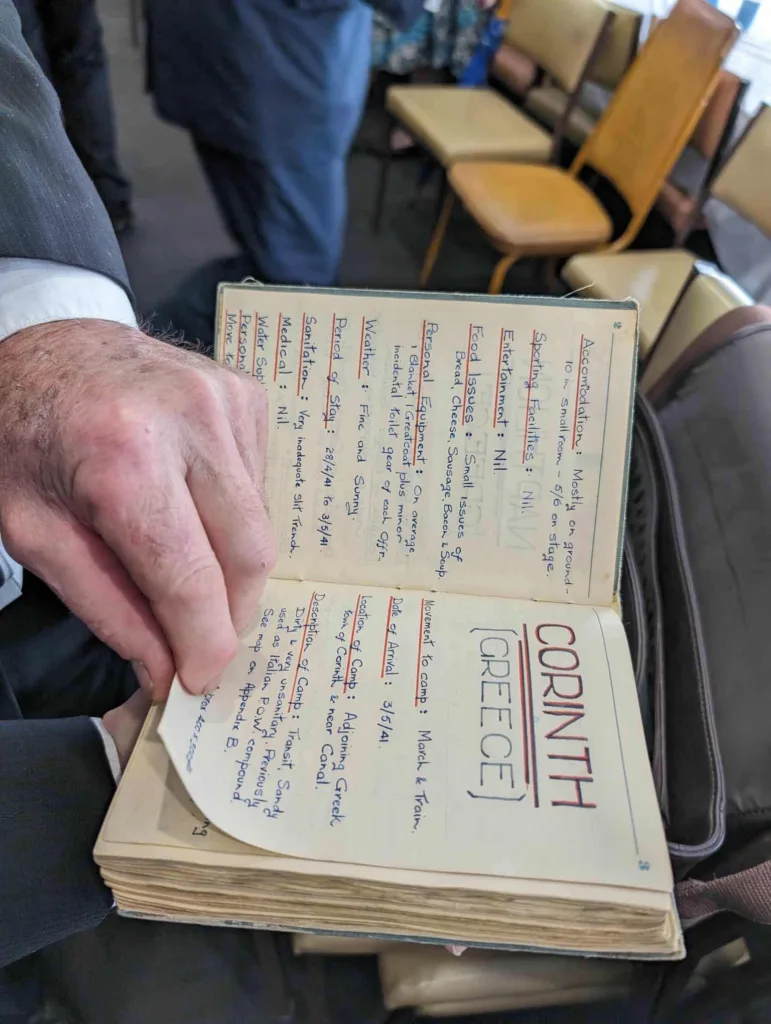 2
Accomodation : Mostly on ground -
10 in small room - 5/6 on stage.
Sporting Facilities : Nil.
Entertainment : Nil.
Food Issues : Small issues of
Bread, Cheese, Sausage, Bacon & Soup.
Personal Equipment : On average,
1 Blanket, 1 Greatcoat plus minor
incidental toilet gear of each Offr.
Weather : Fine and Sunny.
Period of Stay : 28/4/41 to 3/5/41.
Sanitation : Very inadequate Slit Trench.
Medical : Nil.
Water Sup
Persona
Move to
3
CORINTH
(GREECE)
Movement to camp : March & Train.
Date of Arrival : 3/5/41.
Location of Camp : Adjoining Greek
town of Corinth & near Canal.
Description of Camp : Transit, Sandy
Dirty & very unsanitary. Previously
used as Italian P.O.W. compound.
See map on Appendix B.
ng